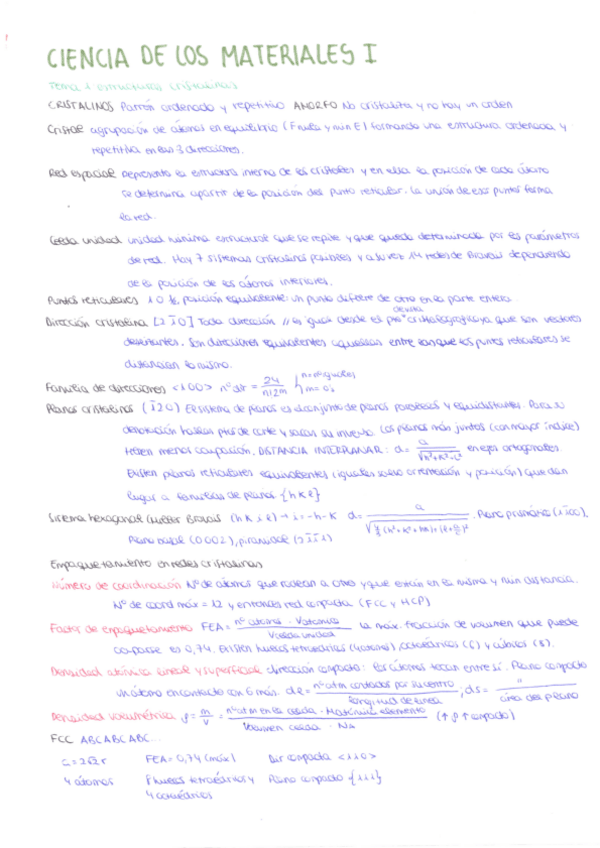 CIENCIA DE LOS MATERIALES I
Tema 1 estructuras cristalinas
CRISTALINOS Patrón ordenado y repetitivo AMORFO No cristaliza y no hay un orden
Cristal agrupación de átomos en equilibrio (F nula y min E) formando una estructura ordenada y
repetitiva en sus 3 direcciones.
Red espacial Representa la estructura interna de los cristales y en ella la posición de cada átomo
se determina a partir de la posición del punto reticular. La unión de esos puntos forma
la red.
Celda unidad unidad mínima estructural que se repite y que queda determinada por los parámetros
de red. Hay 7 sistemas cristalinos posibles y a su vez 14 redes de Bravais dependiendo
de la posición de los átomos interiores.
Puntos reticulares 1 0 ½, posición equivalente: un punto difiere de otro en la parte entera.
Dirección cristalina [2 1̄ 0] Toda dirección // es igual desde el cristalográfico ya que son vectores
desplazantes. Son direcciones equivalentes aquellas entre las que los puntos reticulares se
distancian lo mismo.
Familia de direcciones <100> nº dir = 24/n!2^m n = nº iguales m = 0s
Planos cristalinos (1̄20) El sistema de planos es el conjunto de planos paralelos y equidistantes. Para su
denotación hallas ptos de corte y sacas su inverso. Los planos más juntos (con mayor índice)
tienen menos compactación. DISTANCIA INTERPLANAR: d = a/√(h²+k²+l²) en ejes ortogonales.
Existen planos reticulares equivalentes (iguales salvo orientación y posición) que dan
lugar a familias de planos. {h k l}
Sistema hexagonal (Miller Bravais) (h k i l) → i = -h-k d = a/√(4/3 (h²+k²+hk)+l²). Plano prismático (1 1̄ 00),
Plano basal (0002), piramidal
Empaquetamiento en redes cristalinas
Número de coordinación Nº de átomos que rodean a otro y que están en la misma y min distancia.
Nº de coord máx = 12 y entonces red compacta (FCC y HCP)
Factor de empaquetamiento FEA = nº átomos · Vatómico / Vcelda unidad La máx. fracción de volumen que puede
ocuparse es 0,74. Existen huecos tetraédricos (4 átomos), octaédricos (6) y cúbicos (8).
Densidad atómica lineal y superficial dirección compacta: los átomos tocan entre sí. Plano compacto
un átomo en contacto con 6 más. dl = nº atm contados por su centro / longitud de línea, ds = " / área del plano
Densidad volumétrica ρ = m/V = nº atm en la celda · Matómica elemento / Volumen celda · NA (↑ρ ↑ compacto)
FCC ABCABCABC...
a = 2√2 r FEA = 0,74 (máx) Dir compacta <110>
4 átomos 8 huecos tetraédricos y Plano compacto {111}
4 octaédricos